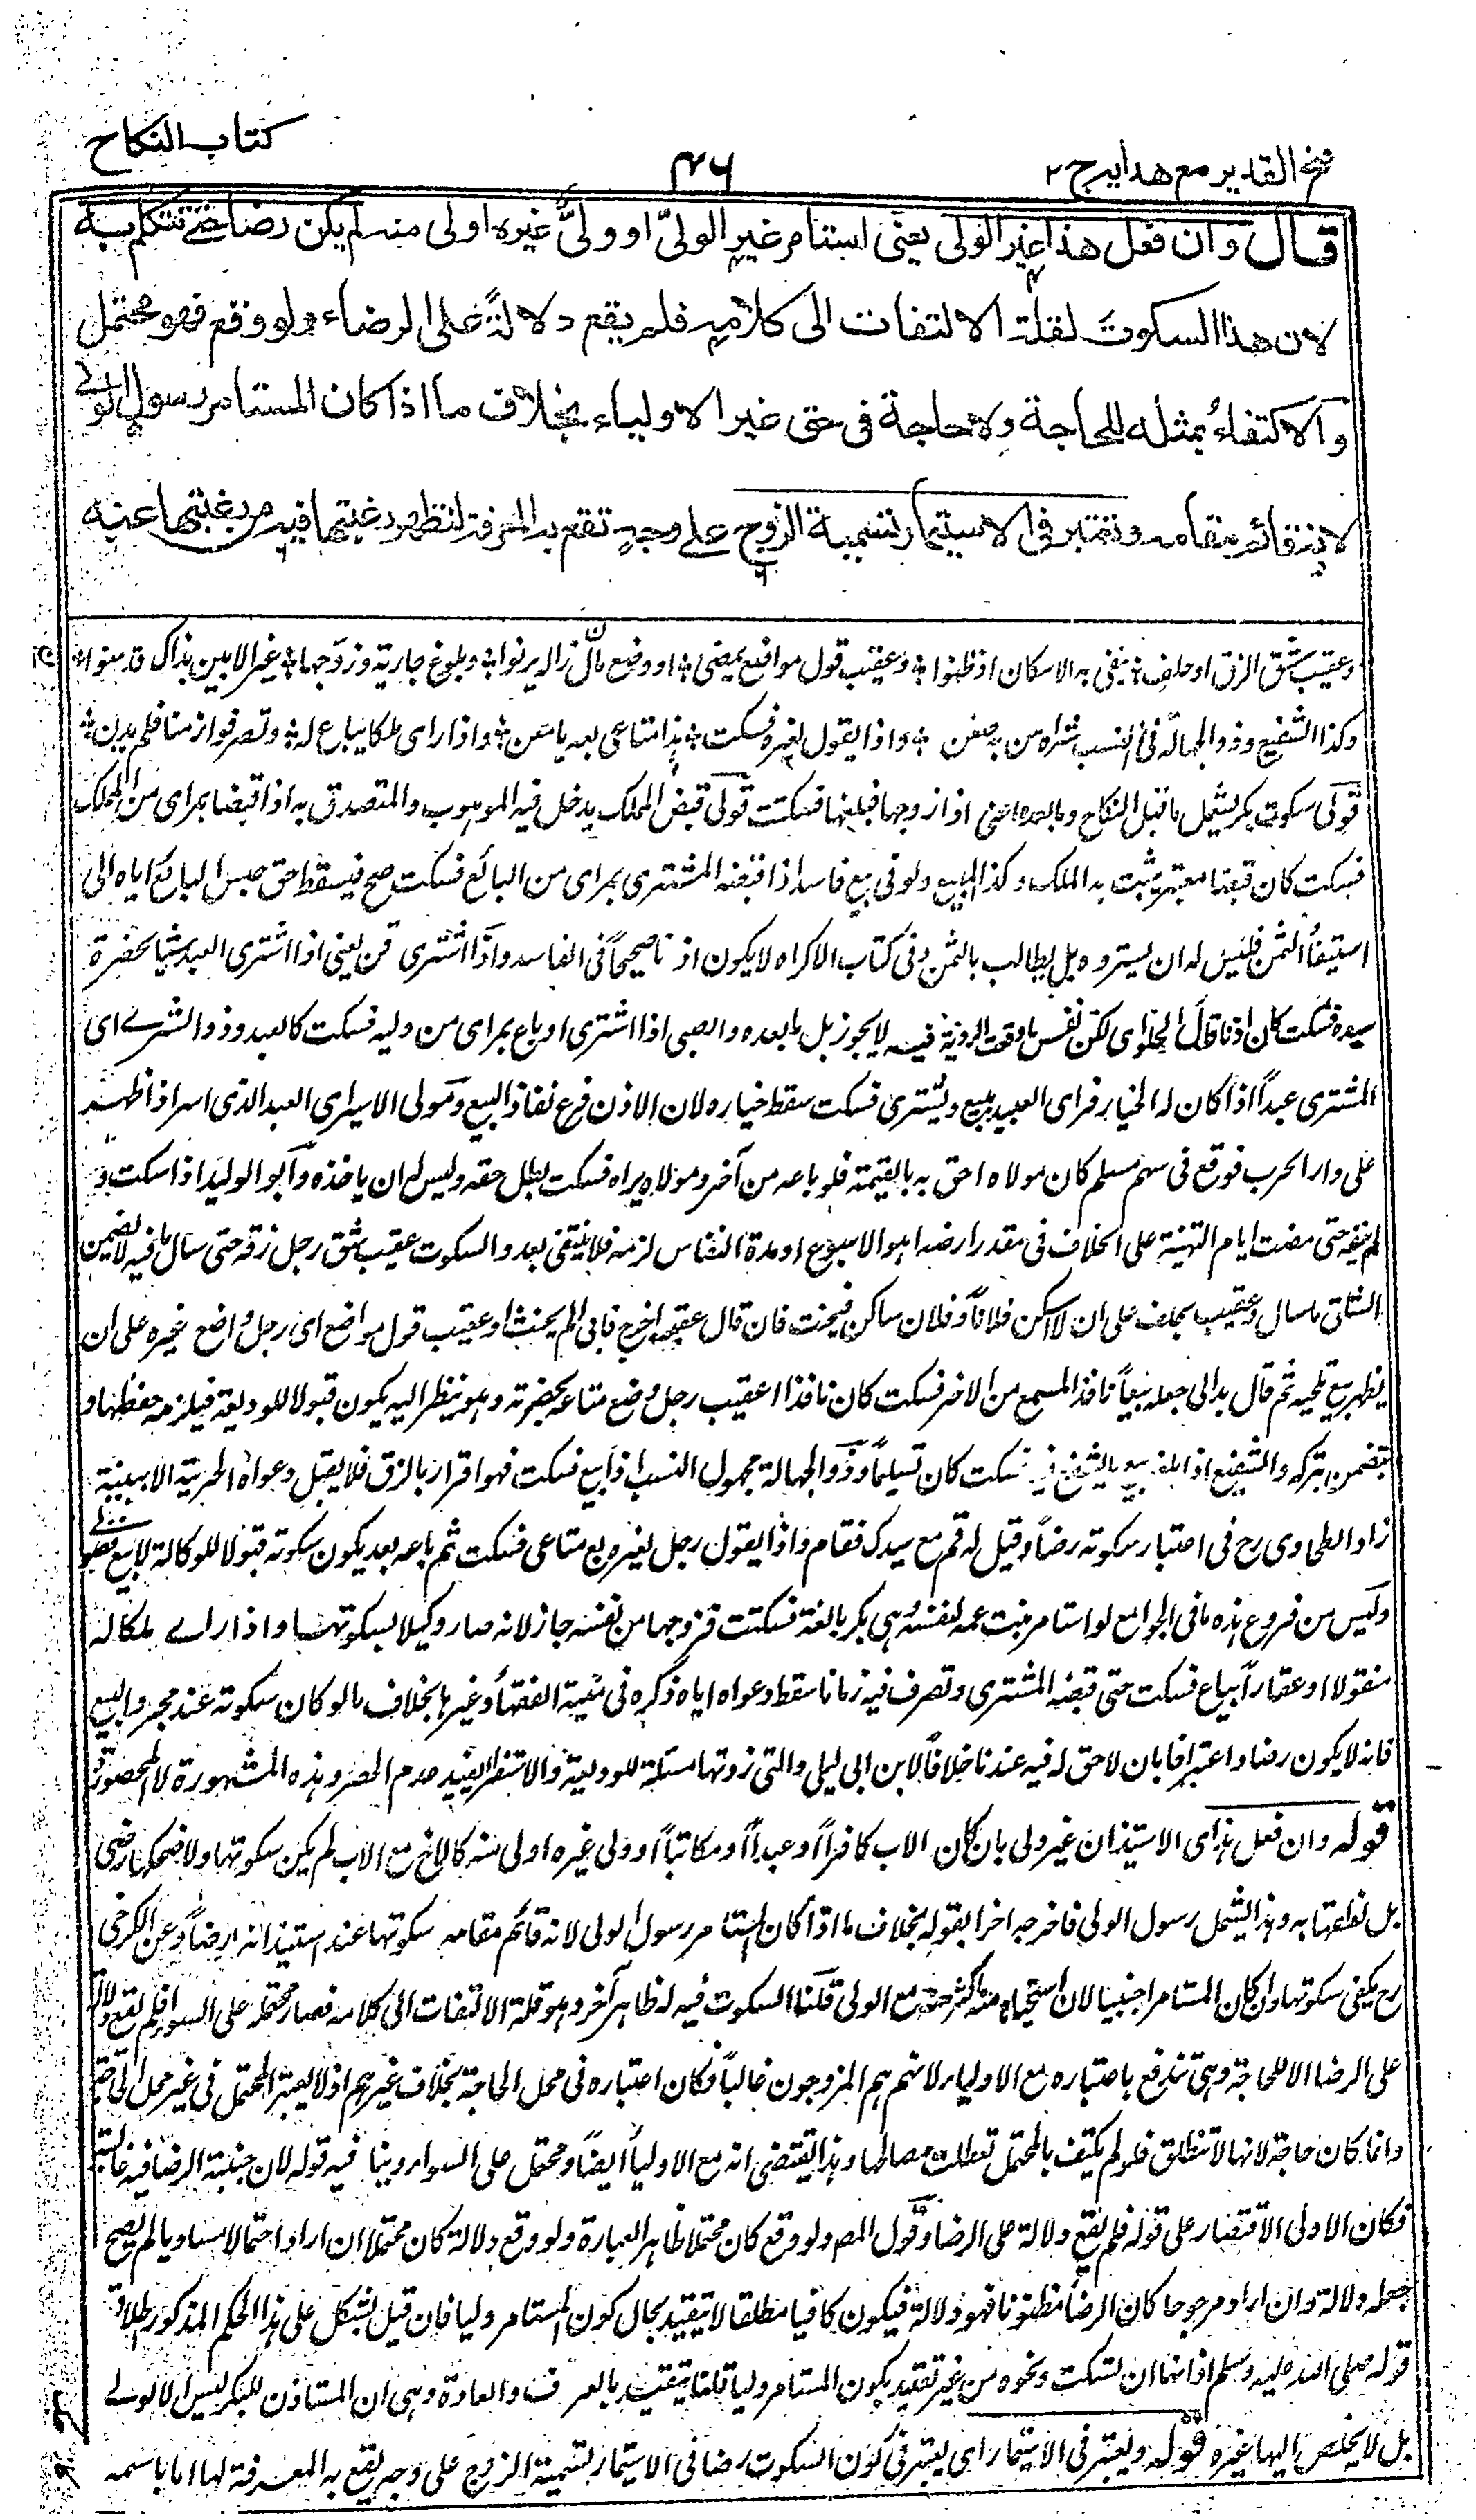 فتح القدير مع هدايہ ج ٢
٤٦
كتاب النكاح
قال وان فعل هذا غير الولى يعنى استامر غير الولىّ او ولىٌّ غيره اولى منه لم يكن رضا حتے تتكلم به
لان هذا السكوتَ لقلة الالتفات الى كلامهٖ فلم يقع دلالةً على الرضاء ولو وقع فهو محتمل
والاكتفاءُ بمثله للحاجة ولا حاجة فى حق غير الاولياء بخلاف ما اذا كان المستامر رسول الولى
لانہ قائم مقامه وتعتبر فى الاستيمار تسمية الزوج على وجهٍ تقع به المعرفة لتظهر رغبتها فيه من رغبتها عنه
وعقيب شق الزق او حلف ينفى به الاسكان اذ ظنوا وعقيب قول مواضع يمضى او وضع مال ذاله يرنوا وبلوغ جارية وزوجها غير الابين بذاك قد منوا
وكذا الشفيع وذو الجهالة فى النسب شراه من به ضغن واذا يقول لغيره فسكت هذا متاعى بعه يا معن واذا راى ملكا يباع له وتصرفوا زمنا فلم يدن
قولى سكوت بكر يشمل ما قبل النكاح وما بعده اعنى اذا زوجها فبلغها فسكتت قولى قبض المملك يدخل فيه الموهوب والمتصدق به اذا قبضا بمراى من المملك
فسكت كان قبضا معتبرا يثبت به الملك وكذا المبيع ولو فى بيع فاسد اذا قبضه المشترى بمراى من البائع فسكت صح فيسقط حق حبس البائع اياه الى
استيفاء الثمن فليس له ان يسترده بل يطالب بالثمن وفى كتاب الاكراه لا يكون اذنا صحيحاً فى الفاسد واذا اشترى قن يعنى اذا اشترى العبد شيا بحضرة
سيده فسكت كان اذنا قال الحلوانى لكن نفس ما وقعت الرؤية فيه لا يجوز بل ما بعده والصبى اذا اشترى او باع بمراى من وليه فسكت كالعبد وذو الشرے اى
المشترى عبداً اذا كان له الخيار فراى العبد يبيع ويشترى فسكت سقط خياره لان الاذن فرع نفاذ البيع ومولى الاسير اى العبد الذى اسر اذا ظهر
على دار الحرب فوقع فى سهم مسلم كان مولاه احق به بالقيمة فلو باعه من آخر ومولاه يراه فسكت بطل حقه وليس له ان ياخذه وابو الوليد اذا سكت و
لم ينفه حتى مضت ايام التهنية على الخلاف فى مقدار ارضه اهو الاسبوع او مدة النفاس لزمه فلا ينتفى بعد والسكوت عقيب شق رجل زقه حتى سال ما فيه لا يضمن
الشاق ما سال وعقيب يحلف على ان لا اسكن فلاناً وفلان ساكن فيحنث فان قال عقيبه اخرج فابى لم يحنث او عقيب قول مواضع اى رجل واضع غيره على ان
يظهر بيع تلجية ثم قال بدا لى جعله بيعاً نافذا لمسمع من الآخر فسكت كان نافذا او عقيب رجل وضع متاعه بحضرته وهو ينظر اليه يكون قبولا للوديعة فيلزمه حفظها و
يضمن بتركه والشفيع اذا بلغه بيع ما يشفع فيه فسكت كان تسليماً وذو الجهالة مجهول النسب اذا بيع فسكت فهو اقرار بالرق فلا يقبل دعواه الحرية الا ببينة
زاد الطحاوى رح فى اعتبار سكوته رضاً وقيل له قم مع سيدك فقام واذا يقول رجل لغيره بع متاعى فسكت ثم باعه بعد يكون سكوته قبولا للوكالة لا بيع فضولى
وليس من فروع هذه ما فى الجوامع لو استامر بنت عمه لنفسه وهى بكر بالغة فسكتت فزوجها من نفسه جاز لانه صار وكيلا بسكوتها واذا راے ملكا له
منقولا او عقاراً يباع فسكت حتى قبضه المشترى وتصرف فيه زمانا سقط دعواه اياه ذكره فى منية الفقهاء وغيرها بخلاف ما لو كان سكوته عند مجرد البيع
فانه لا يكون رضا واعترافا بان لا حق له فيه عندنا خلافاً لابن ابى ليلى والتى زدتها مسئلة للوديعة والاستقراء يفيد عدم الحصر وهذه المشهورة لا المحصورة
قوله وان فعل هذا اى الاستيذان غير ولى بان كان الاب كافراً او عبداً او مكاتباً او ولى غيره اولى منه كالاخ مع الاب لم يكن سكوتها ولا ضحكها رضى
بل نطقها به وهذا يشمل رسول الولى فاخرجه اخرا بقوله بخلاف ما اذا كان المستامر رسول الولى لانه قائم مقامه سكوتها عند استيذانه رضاً وعن الكرخى
رح يكفى سكوتها وان كان المستامر اجنبيا لان استحياءها منه اكثر منه مع الولى قلنا السكوت فيه له ظاهر آخر وهو قلة الالتفات الى كلامه فصار محتمله على السواء فلم يقع دلالة
على الرضا الا للحاجة وهى تندفع باعتباره مع الاولياء لانهم هم المزوجون غالباً فكان اعتباره فى محل الحاجة بخلاف غيرهم اذ لا يعتبر المحتمل فى غير محل الحاجة
وانما كان حاجة لانها لا تنطلق فلو لم يكتف بالمحتمل تعطلت مصالحها وهذا يقتضى انه مع الاولياء ايضاً محتمل على السواء وينافيه قوله لان جنبة الرضا فيه غالبة
فكان الاولى الاقتصار على قوله فلم يقع دلالة على الرضا وقول المص ولو وقع كان محتملا ظاهر العبارة ولو وقع دلالة كان محتملا ان اراد احتمالا مساويا لم يصح
جعله دلالة وان اراد مرجوحا كان الرضا مظنونا فهو دلالة فيكون كافيا مطلقا لا يتقيد بحال كون المستامر وليا فان قيل يشكل على هذا الحكم المذكور اطلاق
قوله صلى الله عليه وسلم اذنها ان تسكت ونحوه من غير تقييد بكون المستامر وليا قلنا يتقيد بالعرف والعادة وهى ان المستاذن للبكر ليس الا الولے
بل لا يخلص اليها غيره قوله ويعتبر فى الاستيمار اى يعتبر فى كون السكوت رضا فى الاستيمار تسمية الزوج على وجه يقع به المعرفة لها اما باسمه